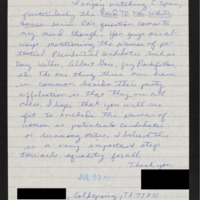 I enjoy watching C-Span,
particularly the ROAD TO THE WHITE
House series. One question comes to
my mind though. You guys are al-
ways mentioning the names of po-
tential Presidential candidates such as
Tony Wilder, Albert Gore, Jay Rockefeller
etc. The one thing these men have
in common besides their party
affiliation is that they are all
males. I hope that you will see
fit to include the names of
women as potential candidates
or running mates. I believe this
is a very important step
towards equality for all.
Thank you,
JUL 22
Coldspring, TX 77331